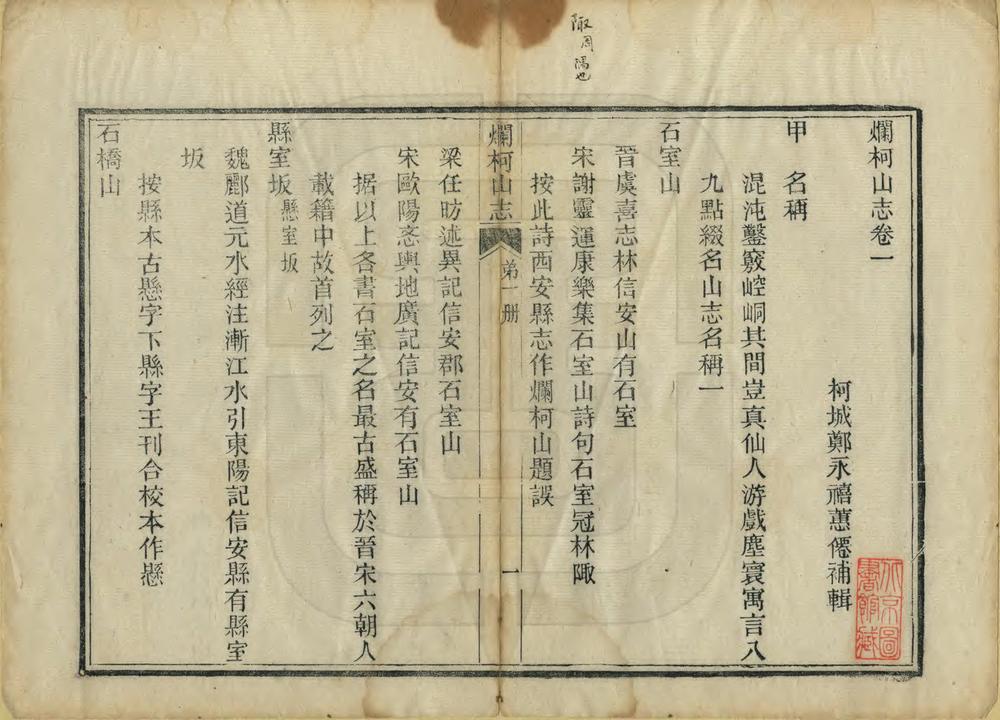 爛柯山志卷一
柯城鄭永禧蕙僊補輯
甲　名稱
混沌鑿竅崆峒其間豈真仙人游戲塵寰寓言八
九點綴名山志名稱一
石室山
晉虞喜志林信安山有石室
宋謝靈運康樂集石室山詩句石室冠林陬
陬周 隅也
按此詩西安縣志作爛柯山題誤
爛柯山志
弟一册
一
梁任昉述異記信安郡石室山
宋歐陽忞輿地廣記信安有石室山
据以上各書石室之名最古盛稱於晉宋六朝人
載籍中故首列之
縣室坂 懸室坂
魏酈道元水經注漸江水引東陽記信安縣有縣室
坂
按縣本古懸字下縣字王刊合校本作懸
石橋山
北京圖書館藏